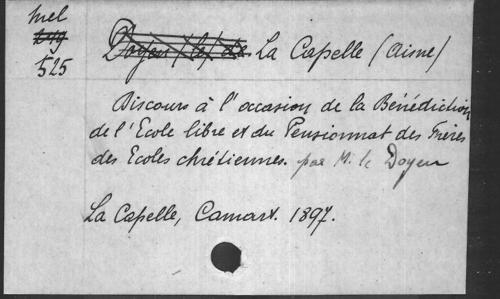 Mel
299
525
Doyen (le) de La Capelle (Aisne)
Discours à l'occasion de la Bénédiction
de l'Ecole libre et du Pensionnat des Frères
des Ecoles chrétiennes. par M. le Doyen
La Capelle, Camart. 1897.